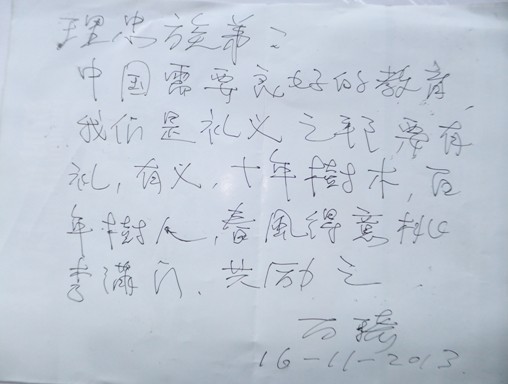 理忠族弟:
中国需要良好的教育,
我们是礼义之邦要有
礼,有义,十年樹木,百
年樹人,春風得意桃
李满门.共励之.
16-11-2013.